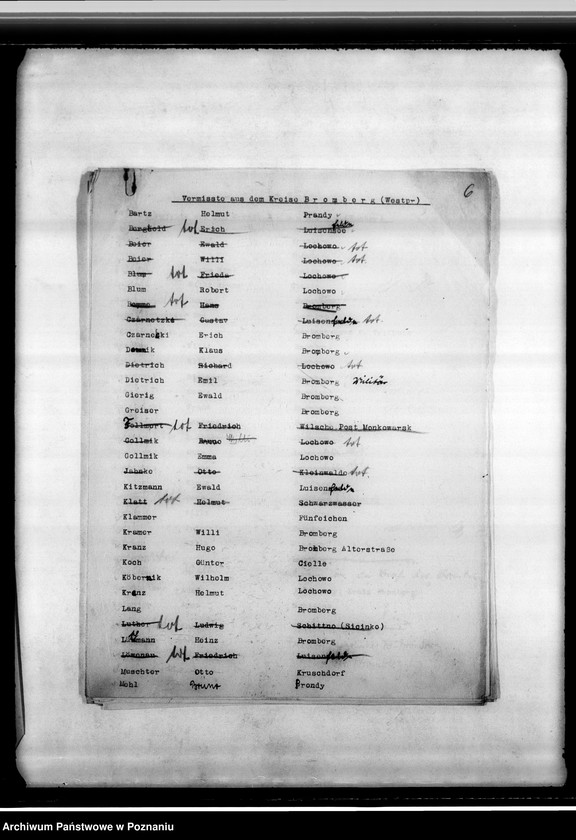 6
Vermisste aus dem Kreise Bromberg (Westpr.)
Bartz Helmut Prondy
tot Erich
Boier Ewald Lochowo tot
Boier Willi Lochowo tot
Blum tot Frieda Lochowo
Blum Robert Lochowo
tot Hans Bromberg
Czarnetzki Gustav Luisenfelde tot
Czarnecki Erich Bromberg
Klaus Bromberg
Dietrich Richard Lochowo tot
Dietrich Emil Bromberg Militär
Gierig Ewald Bromberg
Greiser Bromberg
tot Friedrich Wilsche Post Monkowarsk
Gollmik Bruno Lochowo tot
Gollmik Emma Lochowo
Jahnke Otto Kleinwalde tot
Kitzmann Ewald Luisenfelde
Klatt tot Helmut Schwarzwasser
Klammer Fünfeichen
Kramer Willi Bromberg
Kranz Hugo Bromberg Alterstraße
Koch Günter Cielle
Köbernik Wilhelm Lochowo
Kranz Helmut Lochowo
Lang Bromberg
Luther tot Ludwig Schittno (Sicinko)
Heinz Bromberg
tot Friedrich Luisenfelde
Muschter Otto Kruschdorf
Mohl Bruno Prondy
Archiwum Państwowe w Poznaniu